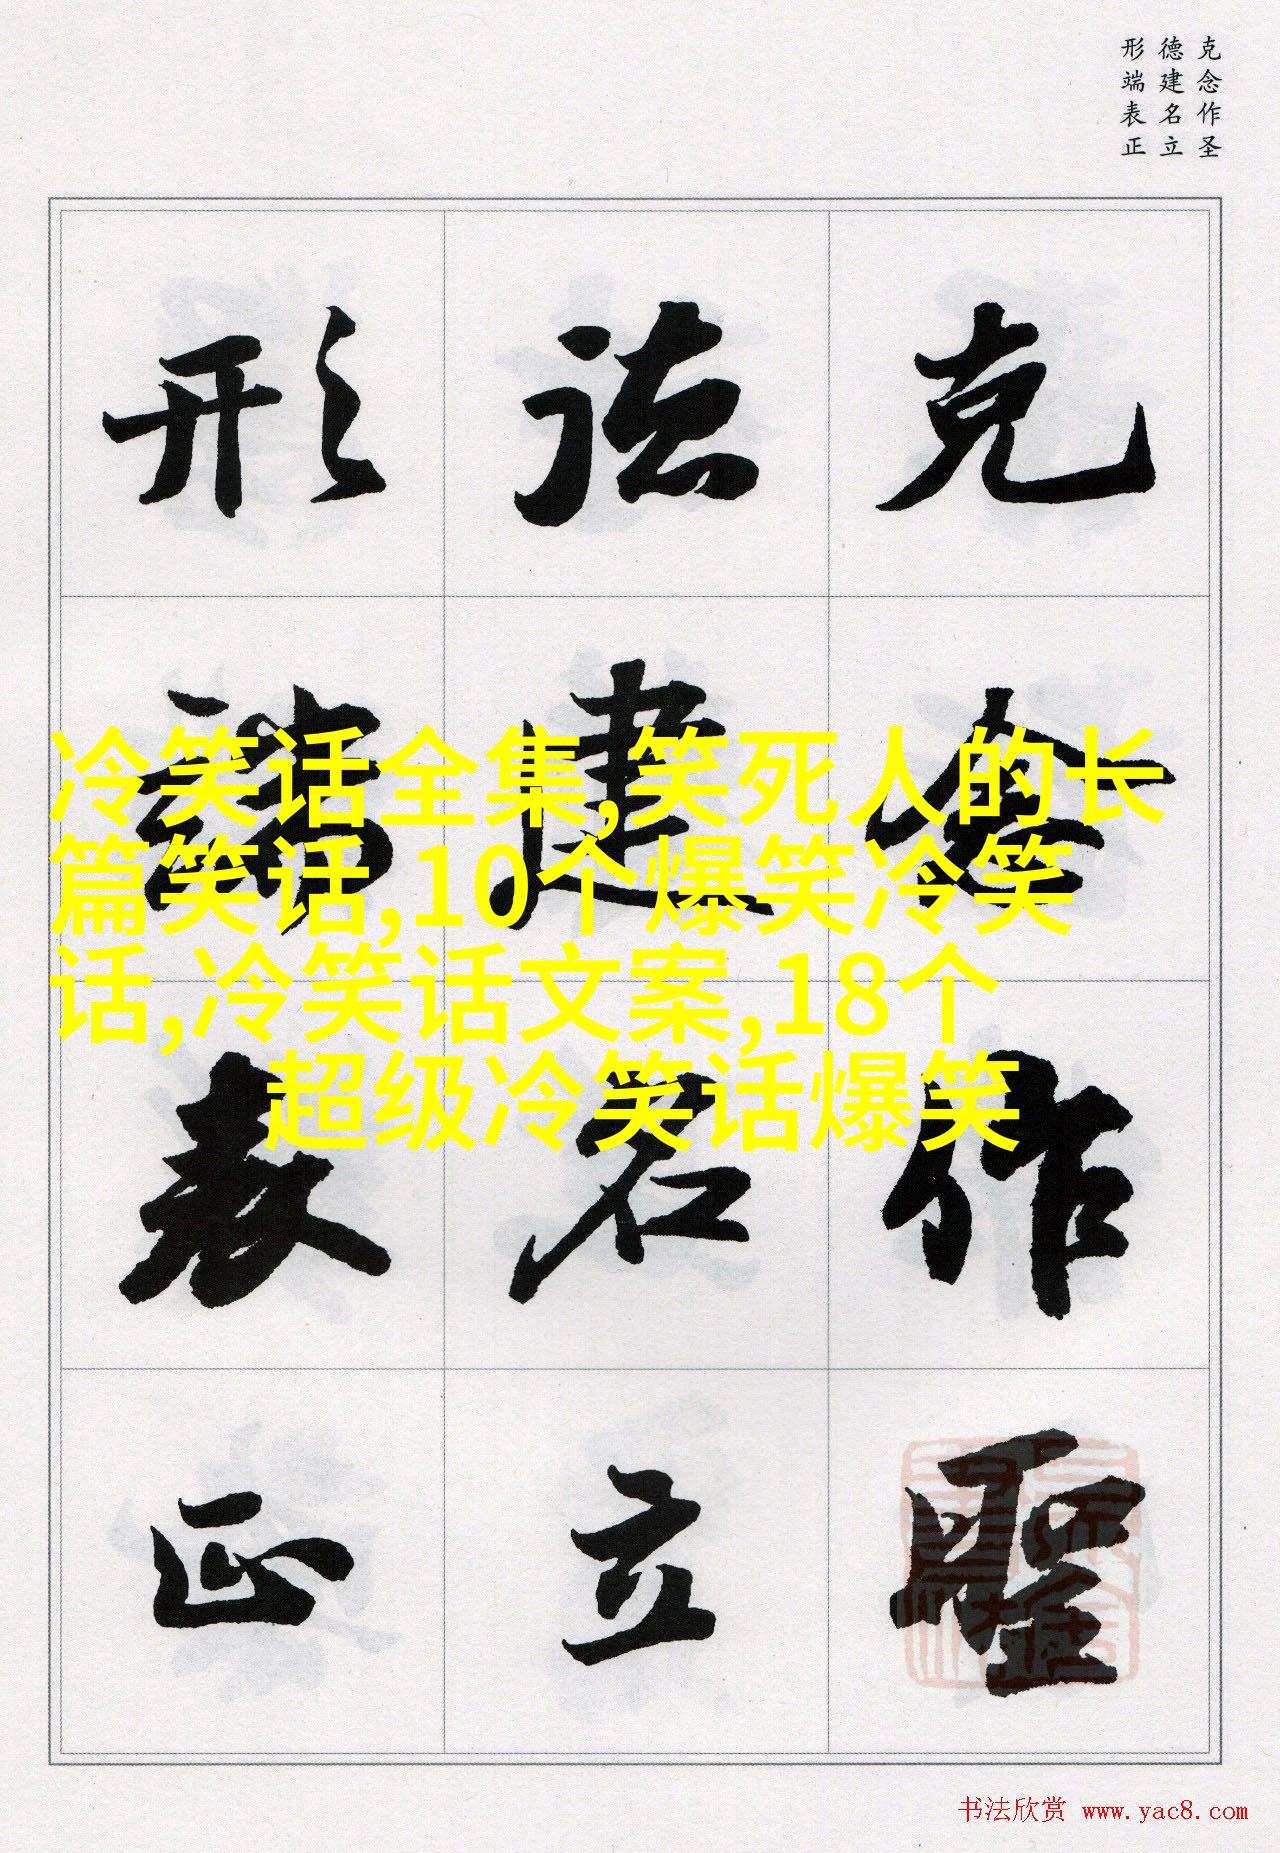 克念作圣
德建名立
形端表正
克念作聖
德建名立
形端表正
冷笑话全集,笑死人的长
篇笑话,10个爆笑冷笑
话,冷笑话文案,18个
超级冷笑话爆笑
书法欣赏 www.yac8.com